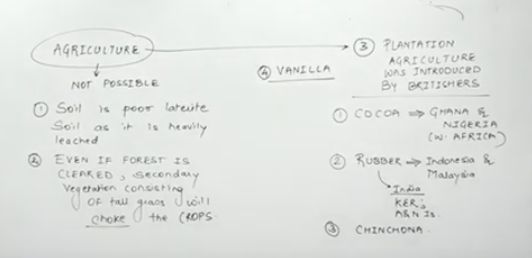 AGRICULTURE
NOT POSSIBLE
① Soil is poor laterite
Soil as it is heavily
leached
② EVEN IF FOREST IS
CLEARED, secondary
Vegetation consisting
of tall grass will
choke the CROPS.
④ VANILLA
③ PLANTATION
AGRICULTURE
WAS INTRODUCED
BY BRITISHERS
① COCOA ⇒ GHANA &
NIGERIA
(W. AFRICA)
② RUBBER ⇒ Indonesia &
Malaysia
India
KER,
A&N Is.
③ CHINCHONA.